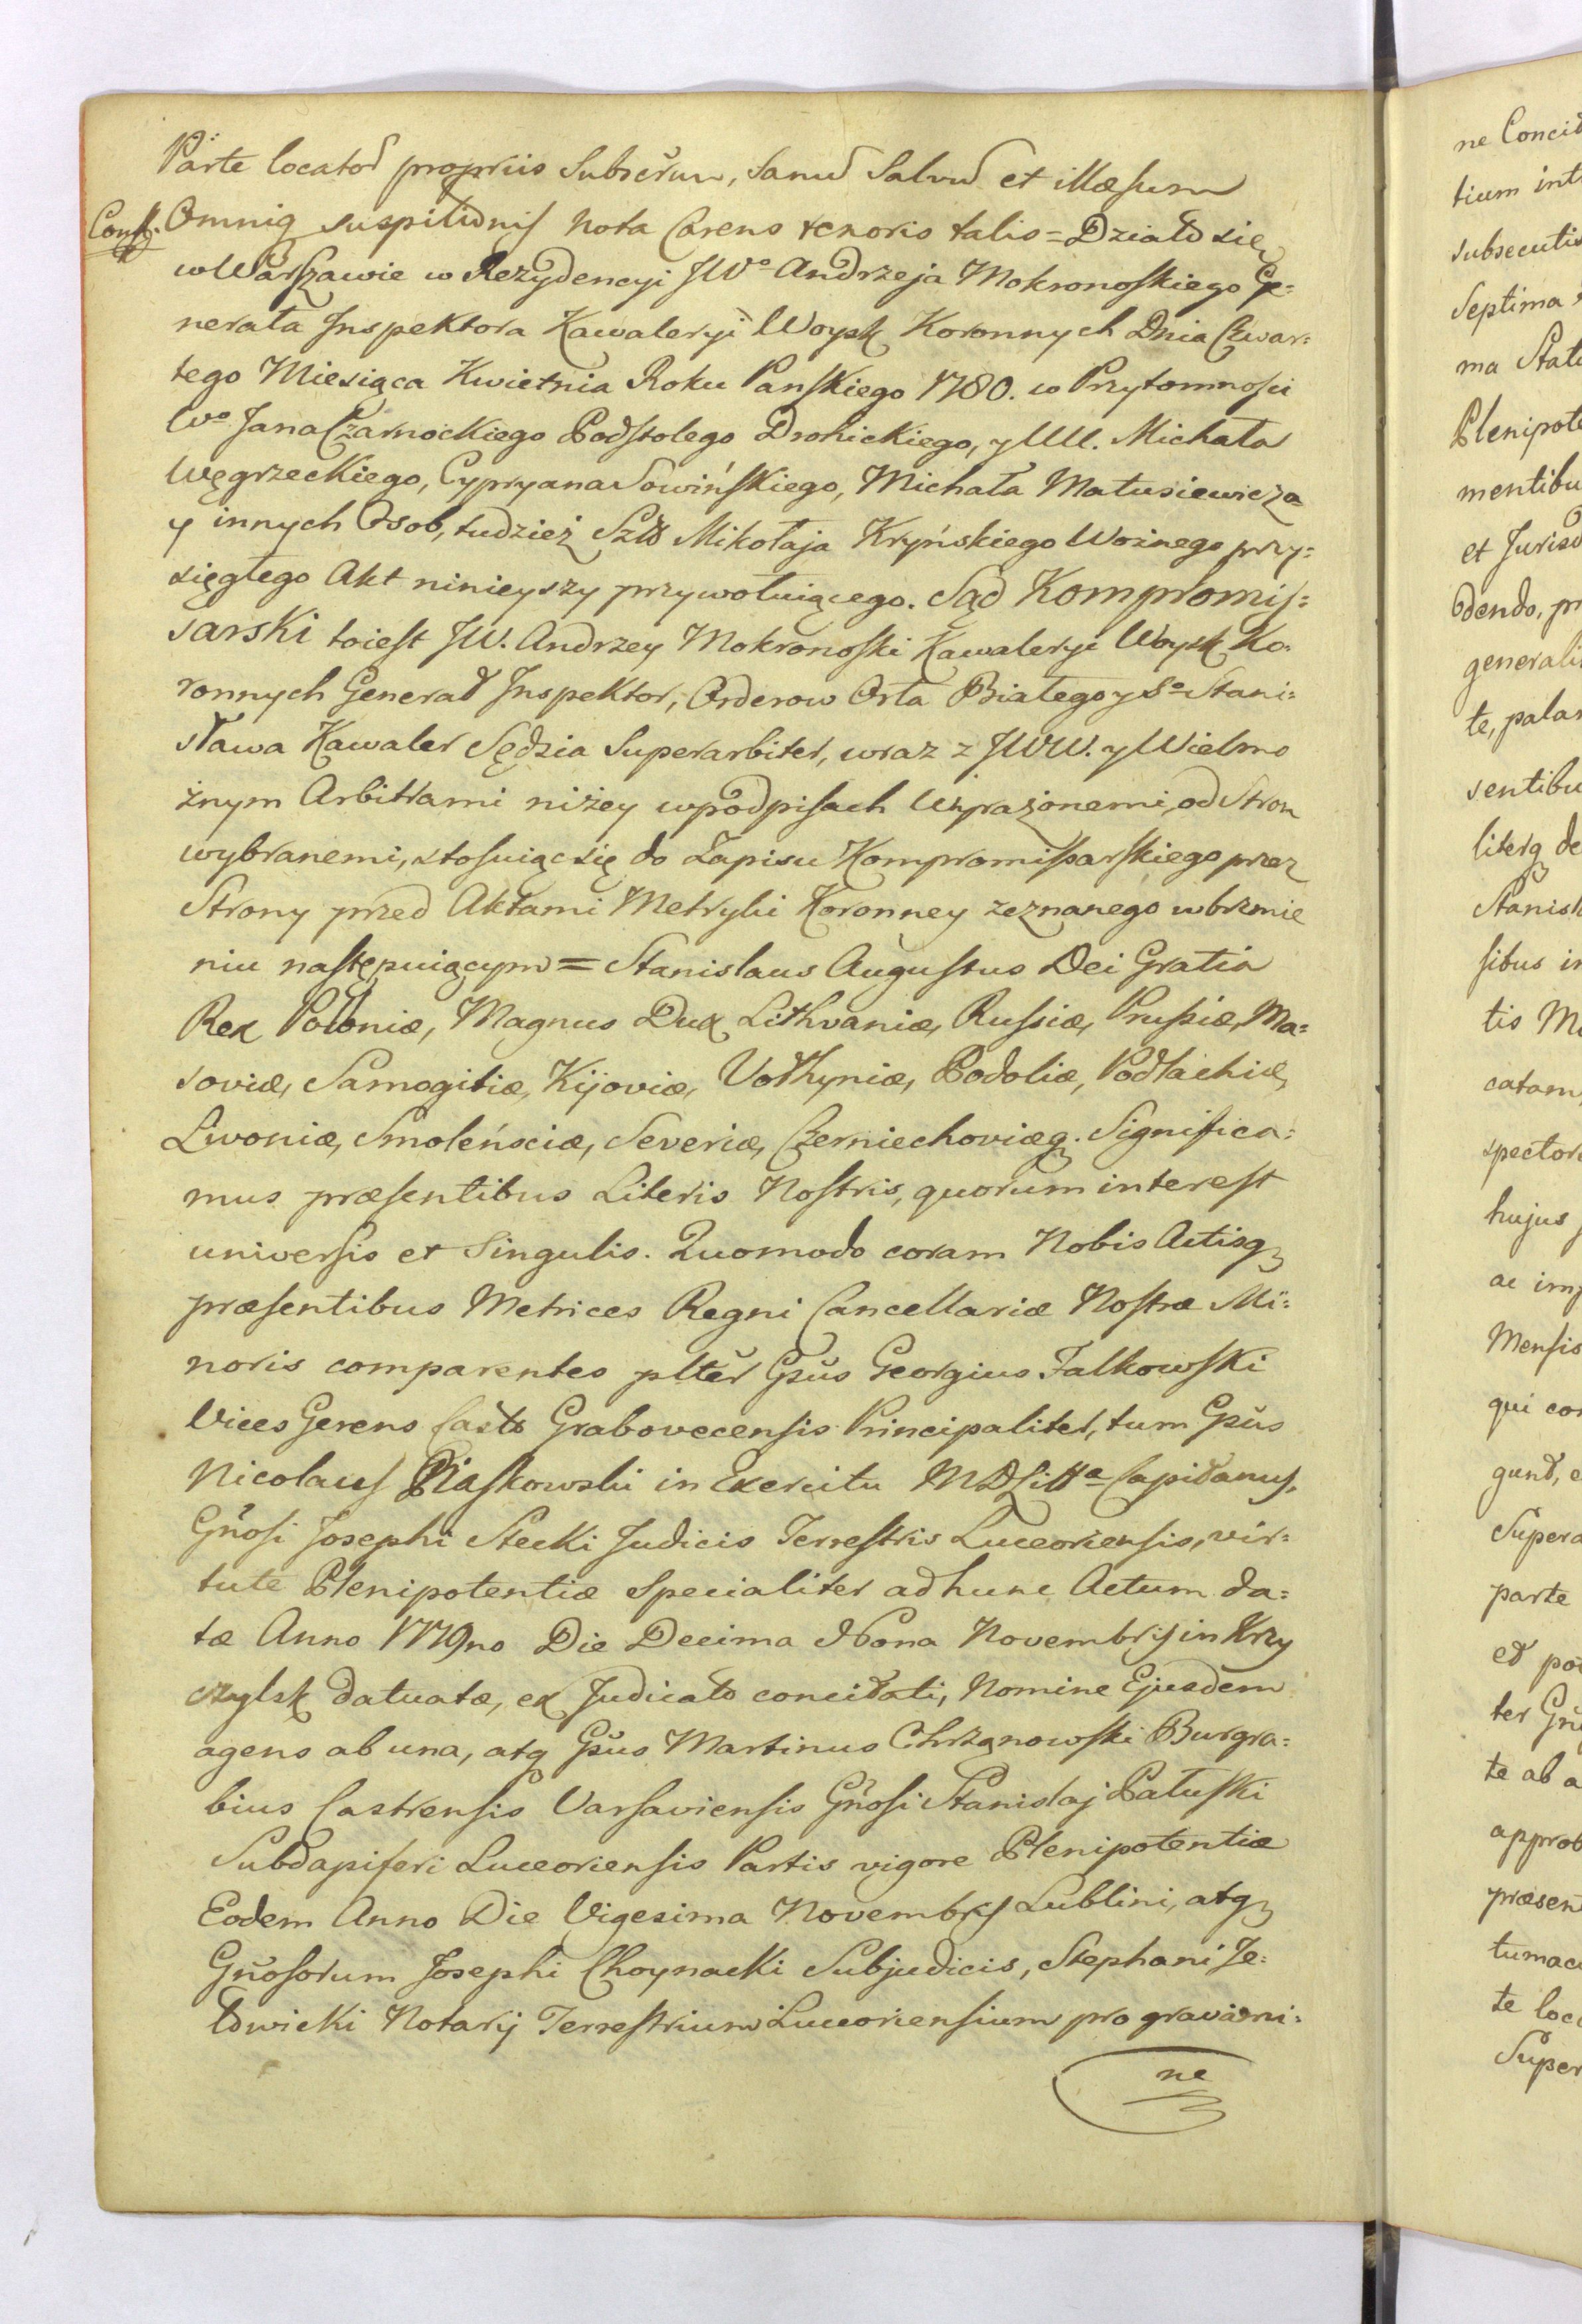 Parte locator propriis Subscrtum, Sanum Salvum et illæsum
Conf. Omniq suspitionis nota Carens tenoris talis = Działo się
w Warszawie w Rezydencyi JWo Andrzeja Mokronoskiego Ge=
nerała Jnspektora Kawaleryi Woysk Koronnych Dnia Czwar=
tego Miesiąca Kwietnia Roku Panskiego 1780. w Przytomnosci
Wo Jana Czarnockiego Podstolego Drohickiego, y UU. Michała
Węgrzeckiego, Cypryana Sowińskiego, Michała Matusiewicza
y innych Osob, tudzież Szło Mikołaja Kryńskiego Woźnego przy=
sięgłego Akt ninieyszy przywołuiącego. Sąd Kompromis=
sarski toiest JW. Andrzey Mokronoski Kawaleryi Woysk Ko=
ronnych Generał Jnspektor, Orderow Orła Białego y So Stani=
sława Kawaler Sędzia Superarbiter, wraz z JWW. y Wielmo
żnym Arbitrami niżey w podpisach Wyrażonemi, od Stron
wybranemi, stosuiąc się do Zapisu Kompromissarskiego przez
Strony przed Aktami Metryki Koronney zeznanego w brzmie
niu następuiącym = Stanislaus Augustus Dei Gratia
Rex Poloniæ, Magnus Dux Lithvaniæ, Russiæ, Prussiæ, Ma=
soviæ, Samogitiæ, Kijoviæ, Volhyniæ, Podoliæ, Podlachiæ,
Livoniæ, Smoleńsciæ, Severiæ, Czerniechoviæq. Significa=
mus præsentibus Literis Nostris, quorum interest
universis et Singulis. Quomodo coram Nobis Actisq
præsentibus Metrices Regni Cancellariæ Nostræ Mi=
noris comparentes plter Gsus Georgius Falkowski
Vices Gerens Castr Grabovecensis Principaliter, tum Gsus
Nicolaus Piaskowski in Exercitu MDLitta Capitanus,
Gnosi Josephi Stecki Judicis Terrestris Luceoriensis, vir=
tute Plenipotentiæ Specialiter ad hunc Actum da=
tæ Anno 1779no Die Decima Nona Novembris in Krzy
czylsk datuatæ, ex Judicato concitati, Nomine Ejusdem
agens ab una, atq Gsus Martinus Chrzanowski Burgra=
bius Castrensis Varsaviensis Gnosi Stanislaj Pałuski
Subdapiferi Luceoriensis Partis vigore Plenipotentiæ
Eodem Anno Die Vigesima Novembris Lublini, atq
Gnosorum Josephi Choynacki Subjudicis, Stephani Je=
łowicki Notarij Terrestrium Luceoriensium pro gravami=
ne
ne Concit
tium int
subsecutis
Septima
ma Statu
Plenipote
mentibu
et Jurisd
dendo, pr
generali
te, palan
sentibu
literq de
Stanisl
sibus in
tis Ma
catam
spector
hujus
ac imp
Mensis
qui co
gunt, e
Supera
parte
et po
ter Gn
te ab a
approb
præsen
tumac
te loc
Super